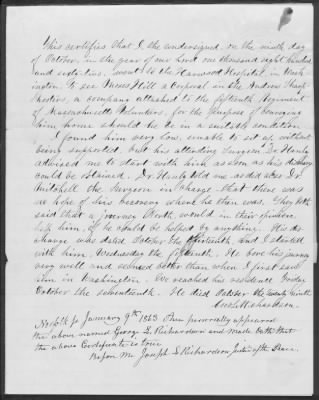 This certifies that I the undersigned on the ninth day
of October, in the year of our Lord one thousand eight hundred
and sixty two, went to the Harewood Hospital, in Wash-
ington, to see Moses Hill a Corporal in the Andrew Sharp
Shooters, a company attached to the fifteenth Regiment
of Massachusetts Volunteers, for the purpose of conveying
him home should he be in a suitable condition
I found him very low, unable to sit up without
being supported, but his attending Surgeon Dr
advised me to start with him as soon as his discharge
could be obtained. Dr told me as did also Dr
the Surgeon in Charge that there was
no hope of his recovery where he then was. They both
said that a journey North, would in their opinion
help him, if he could be helped by anything. His dis-
charge was dated October the and I started
with him, Wednesday the fifteenth. He bore his journey
very well and seemed better than when I first saw
him in Washington. We reached his residence Friday
October the seventeenth. He died October the twenty ninth
Richardson.
Norfolk ss January 9th 1863 Then personally appeared
the above named George S. Richardson and made oath that
the above Certificate is true
Before me Joseph S Richardson Justice of the Peace.